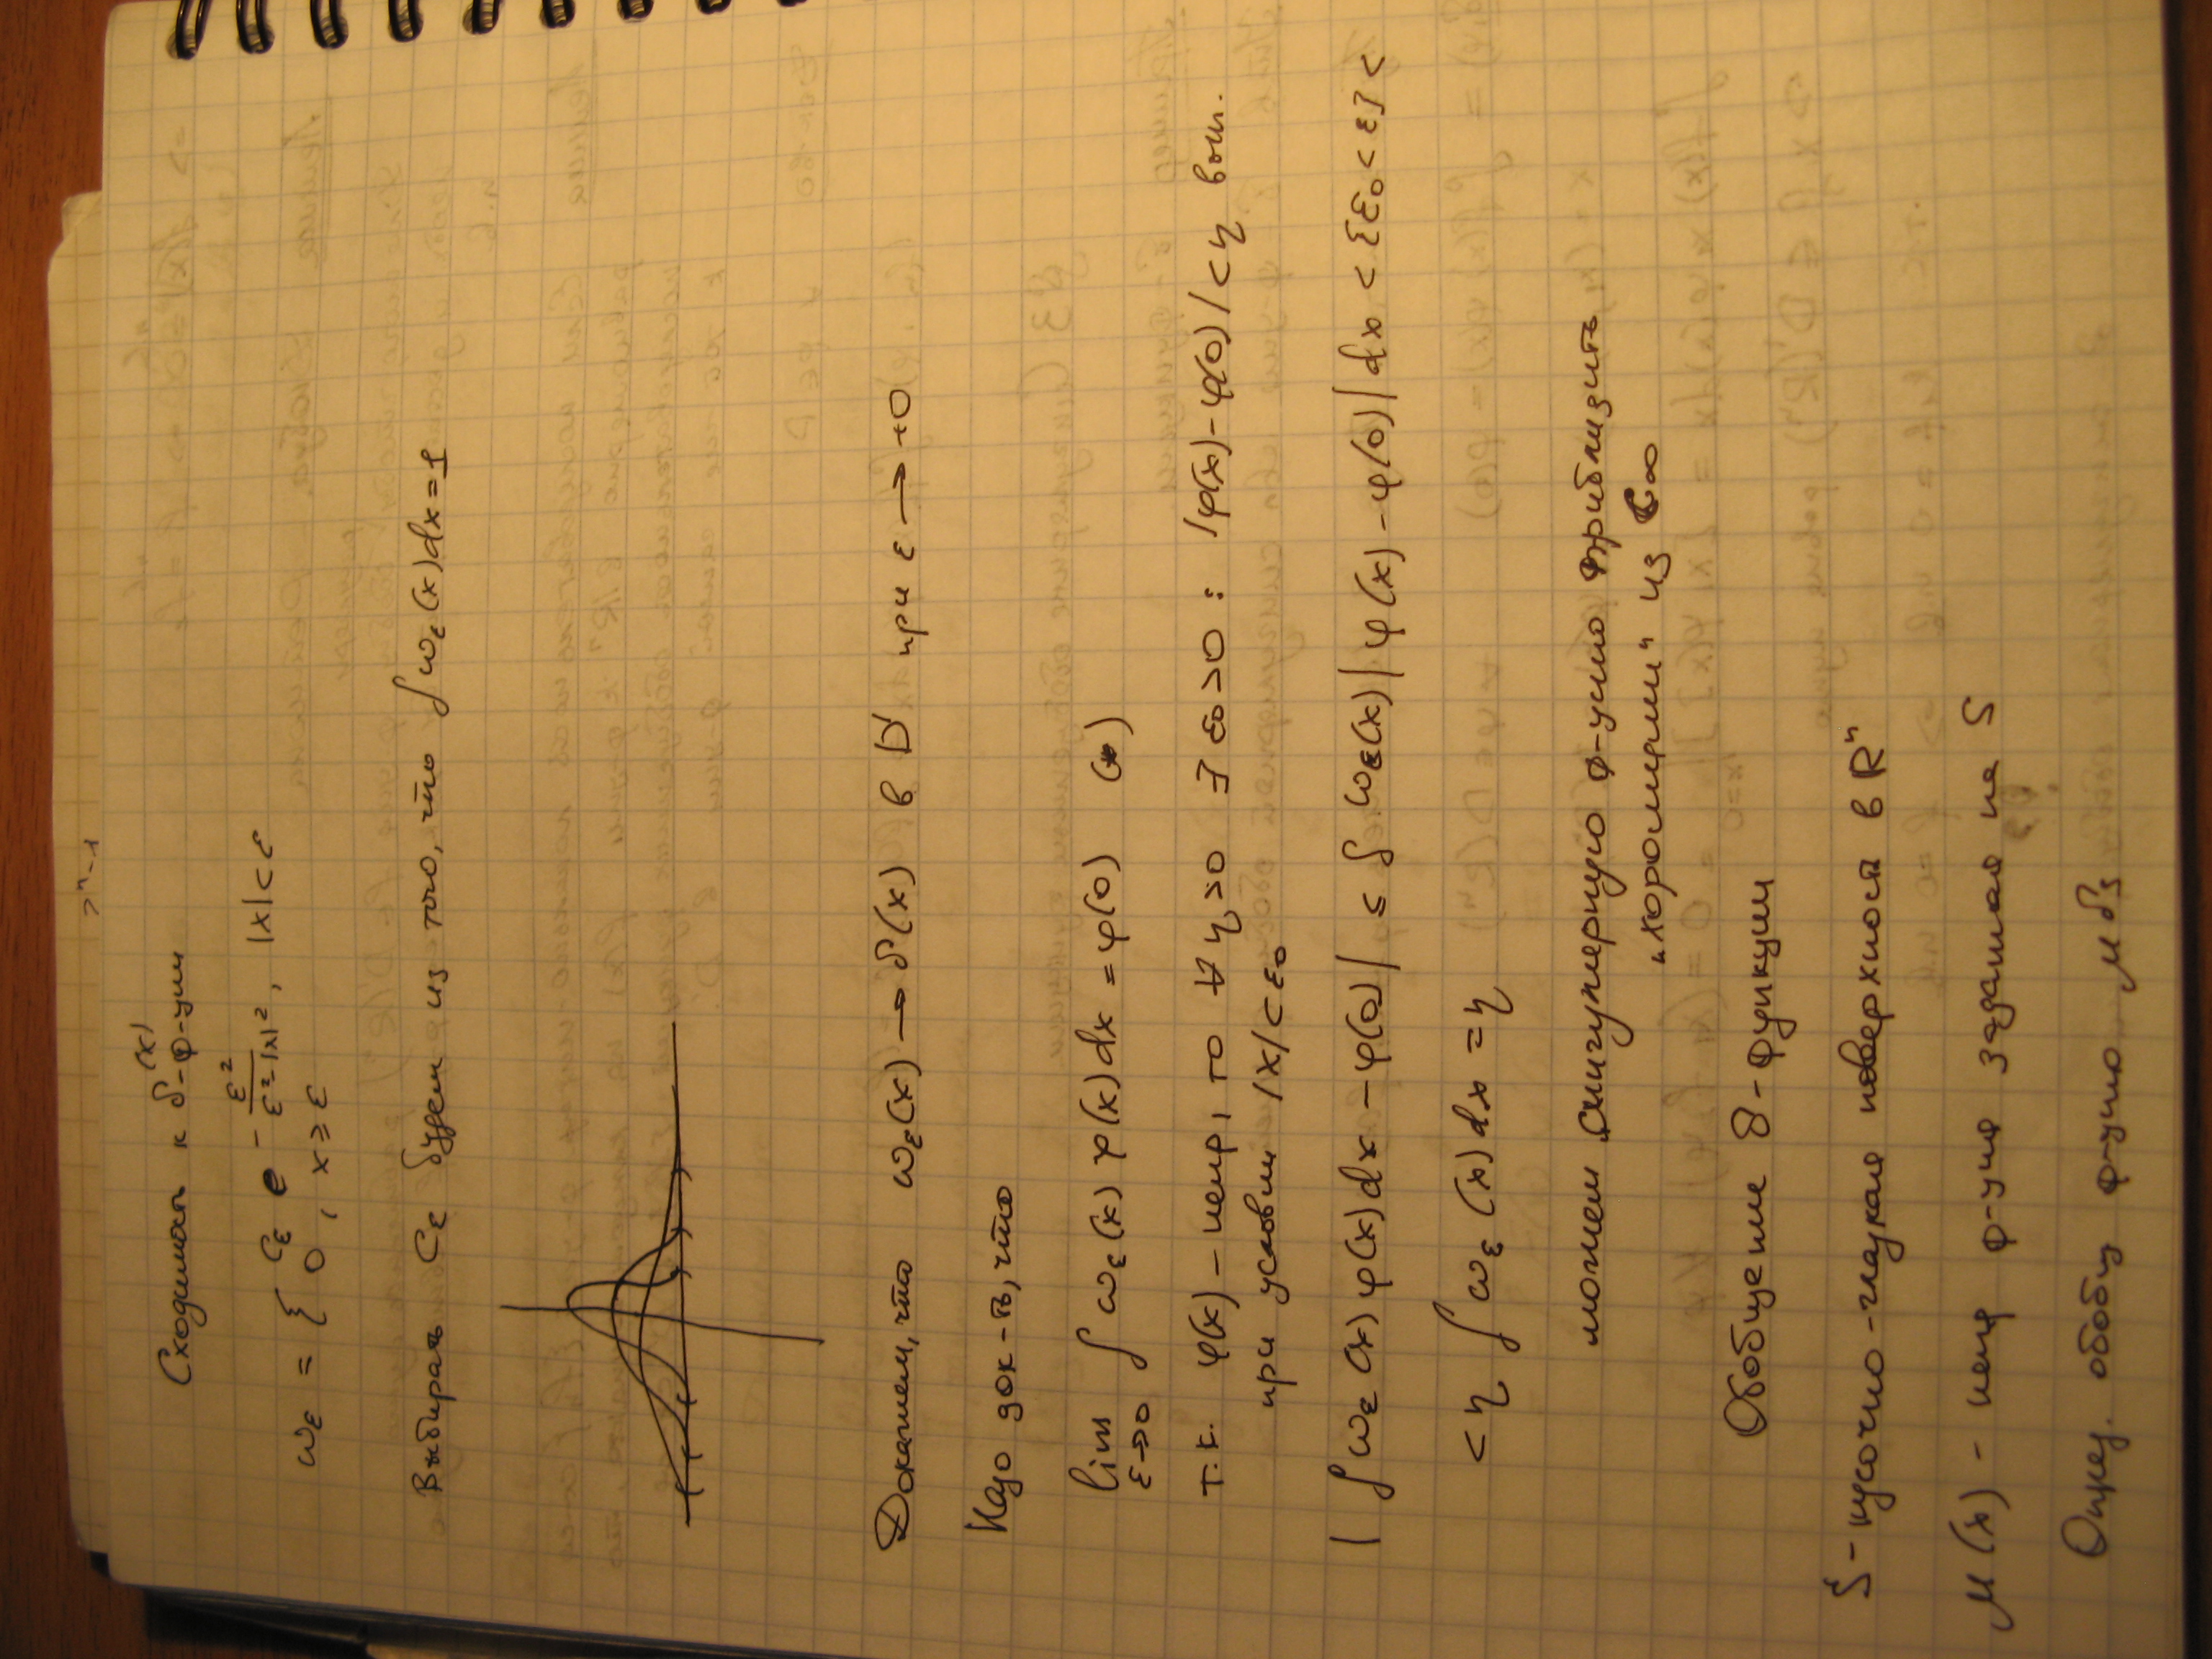 Сходимость к δ(x)-ф-ции
ω_ε = { C_ε e^{-ε²/(ε²-|x|²)}, |x|<ε
0, x≥ε
Выбирать C_ε будем из того, что ∫ω_ε(x)dx=1
Докажем, что ω_ε(x) → δ(x) в D' при ε → +0
Надо док-ть, что
lim_{ε→0} ∫ω_ε(x)φ(x)dx = φ(0) (*)
т.к. φ(x) - непр, то ∀η>0 ∃ε₀>0 : |φ(x)-φ(0)|<η вып.
при условии |x|<ε₀
|∫ω_ε(x)φ(x)dx - φ(0)| ≤ ∫ω_ε(x)|φ(x)-φ(0)|dx < [ε₀<ε] <
< η ∫ω_ε(x)dx = η
можем сингулярную ф-цию приблизить
"хорошими" из C^∞
Обобщение δ-функции
S - кусочно-гладкая поверхность в R^n
μ(x) - непр ф-ция заданная на S
Опред. обобщ ф-цию μδ_S